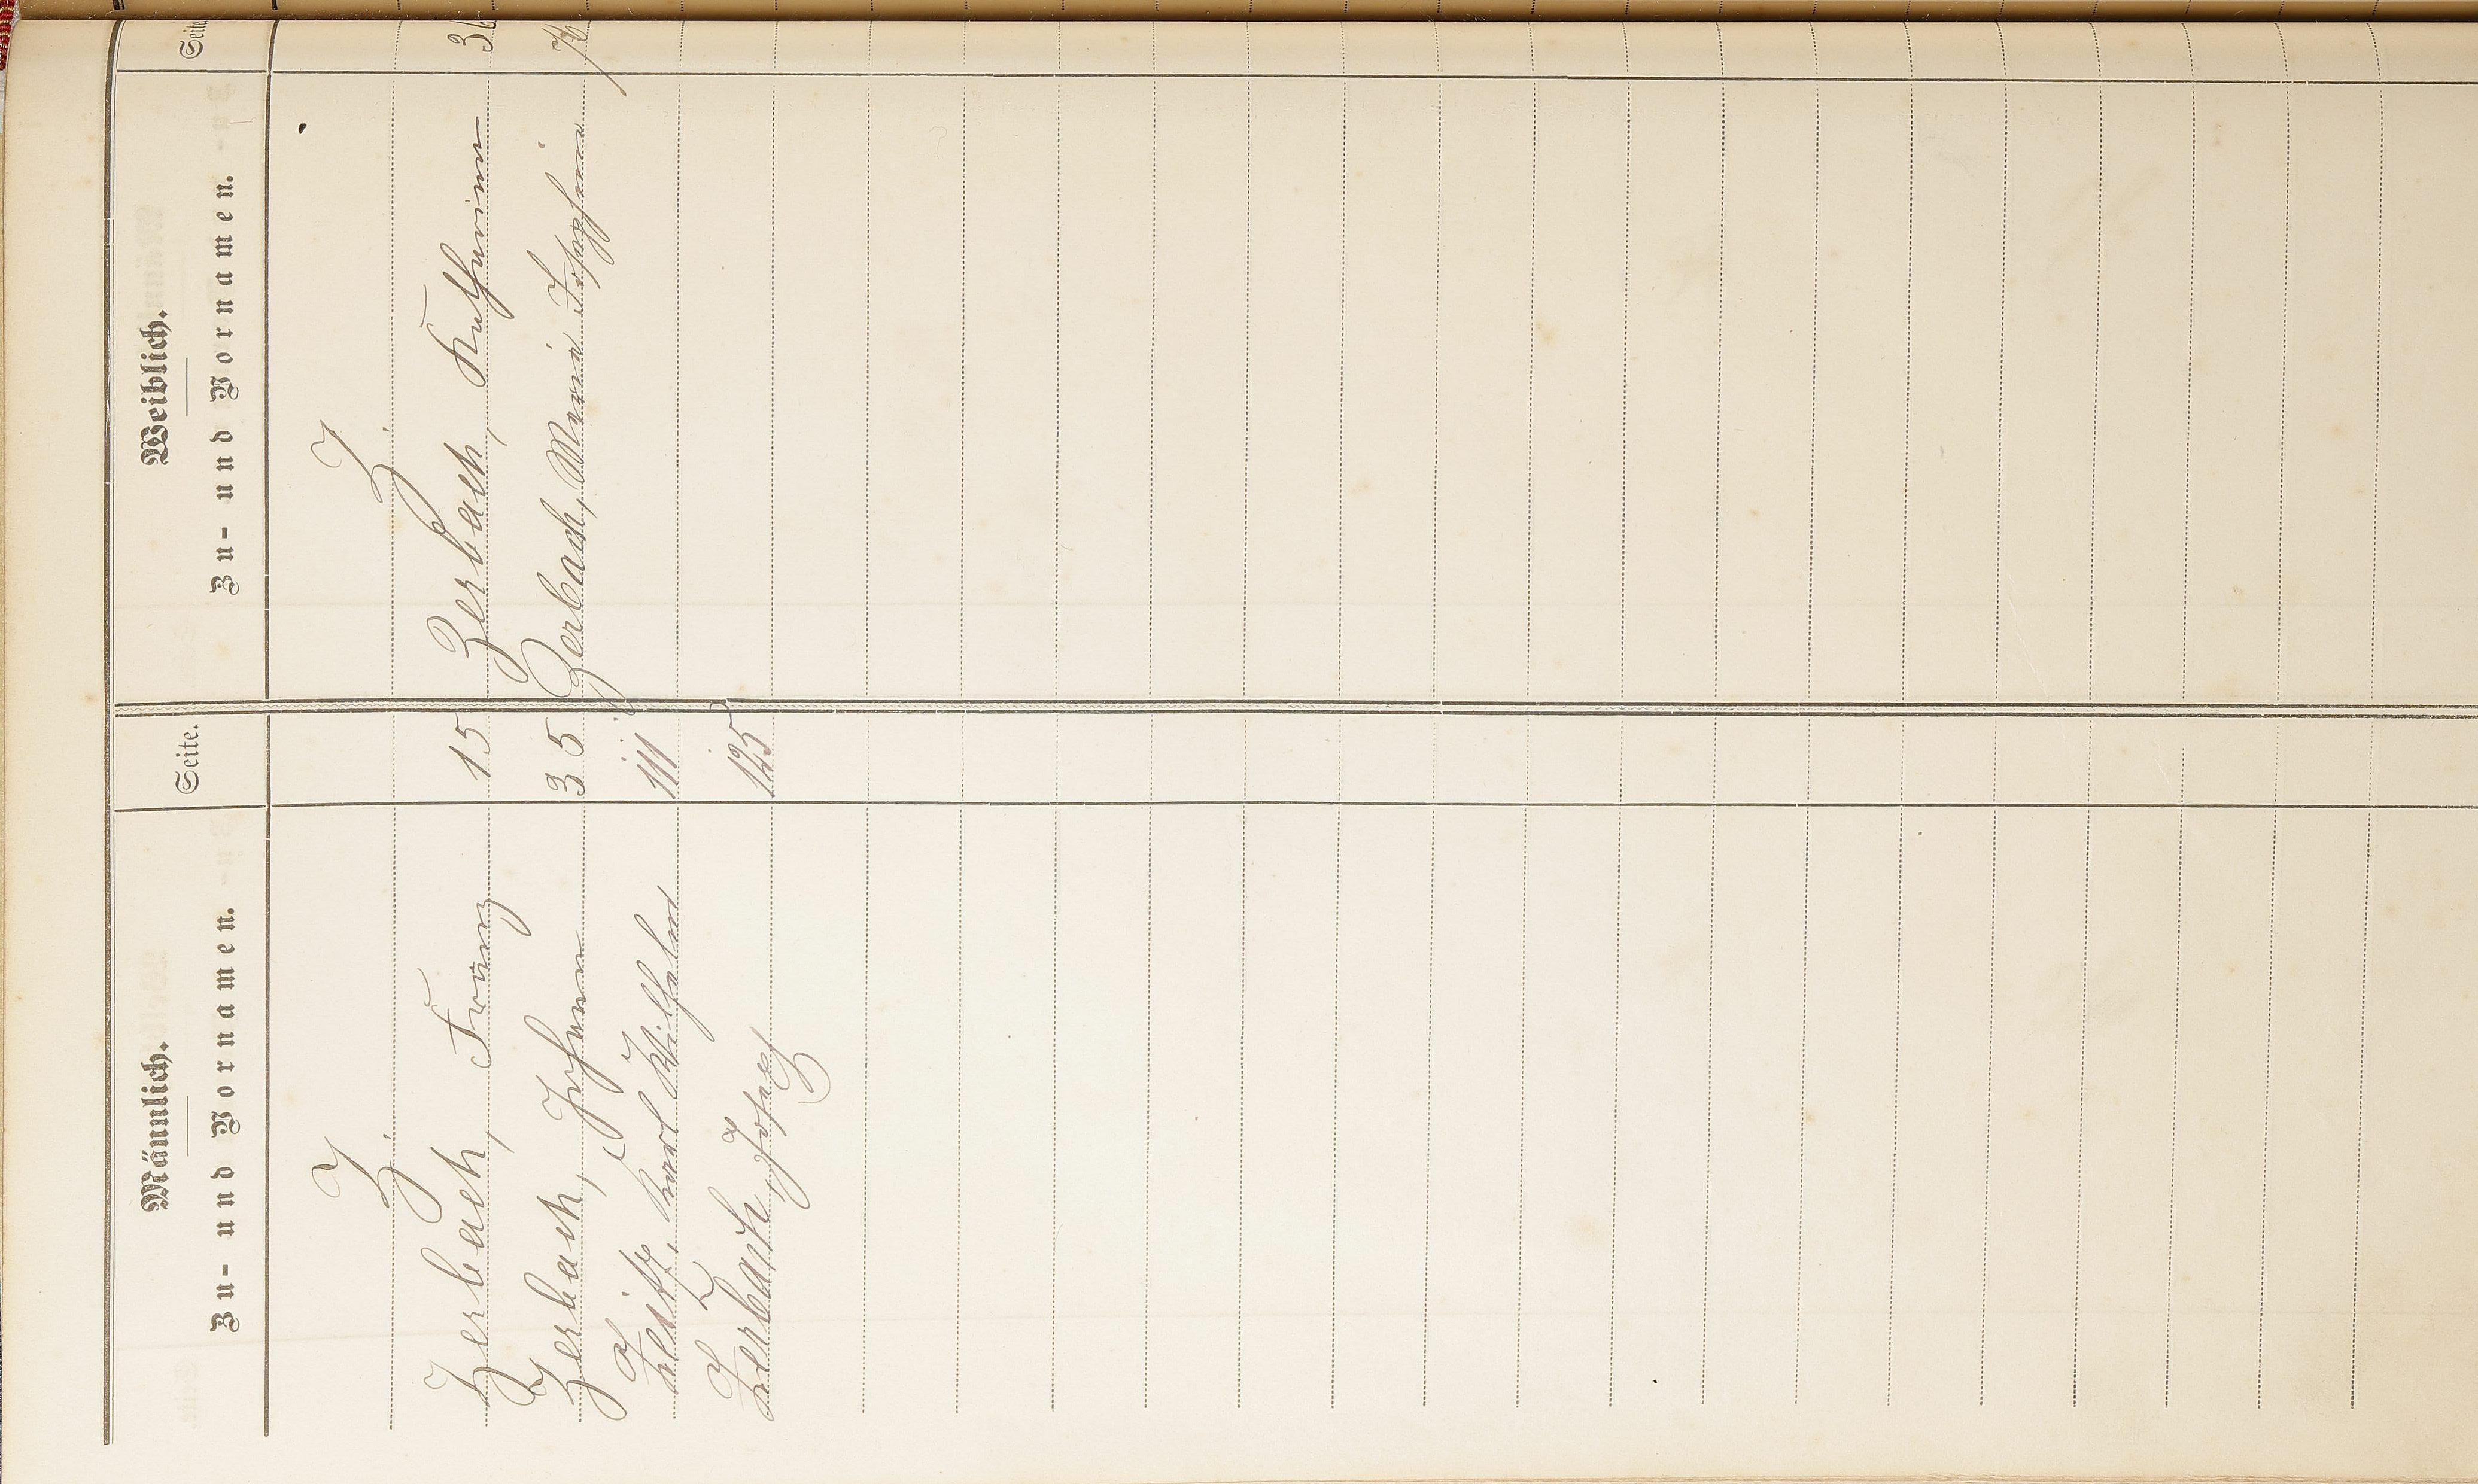 Männlich.
Zu- und Vornamen.
Seite.
Z.
Zerbach, Franz 15
Zerbach, Johann 35
Zeitz, Karl Wilhelm 111
Zerbach, Josef 125
Weiblich.
Zu- und Vornamen.
Seite
Z.
Zerbach, Katharina 36
Zerbach, Maria Josephina